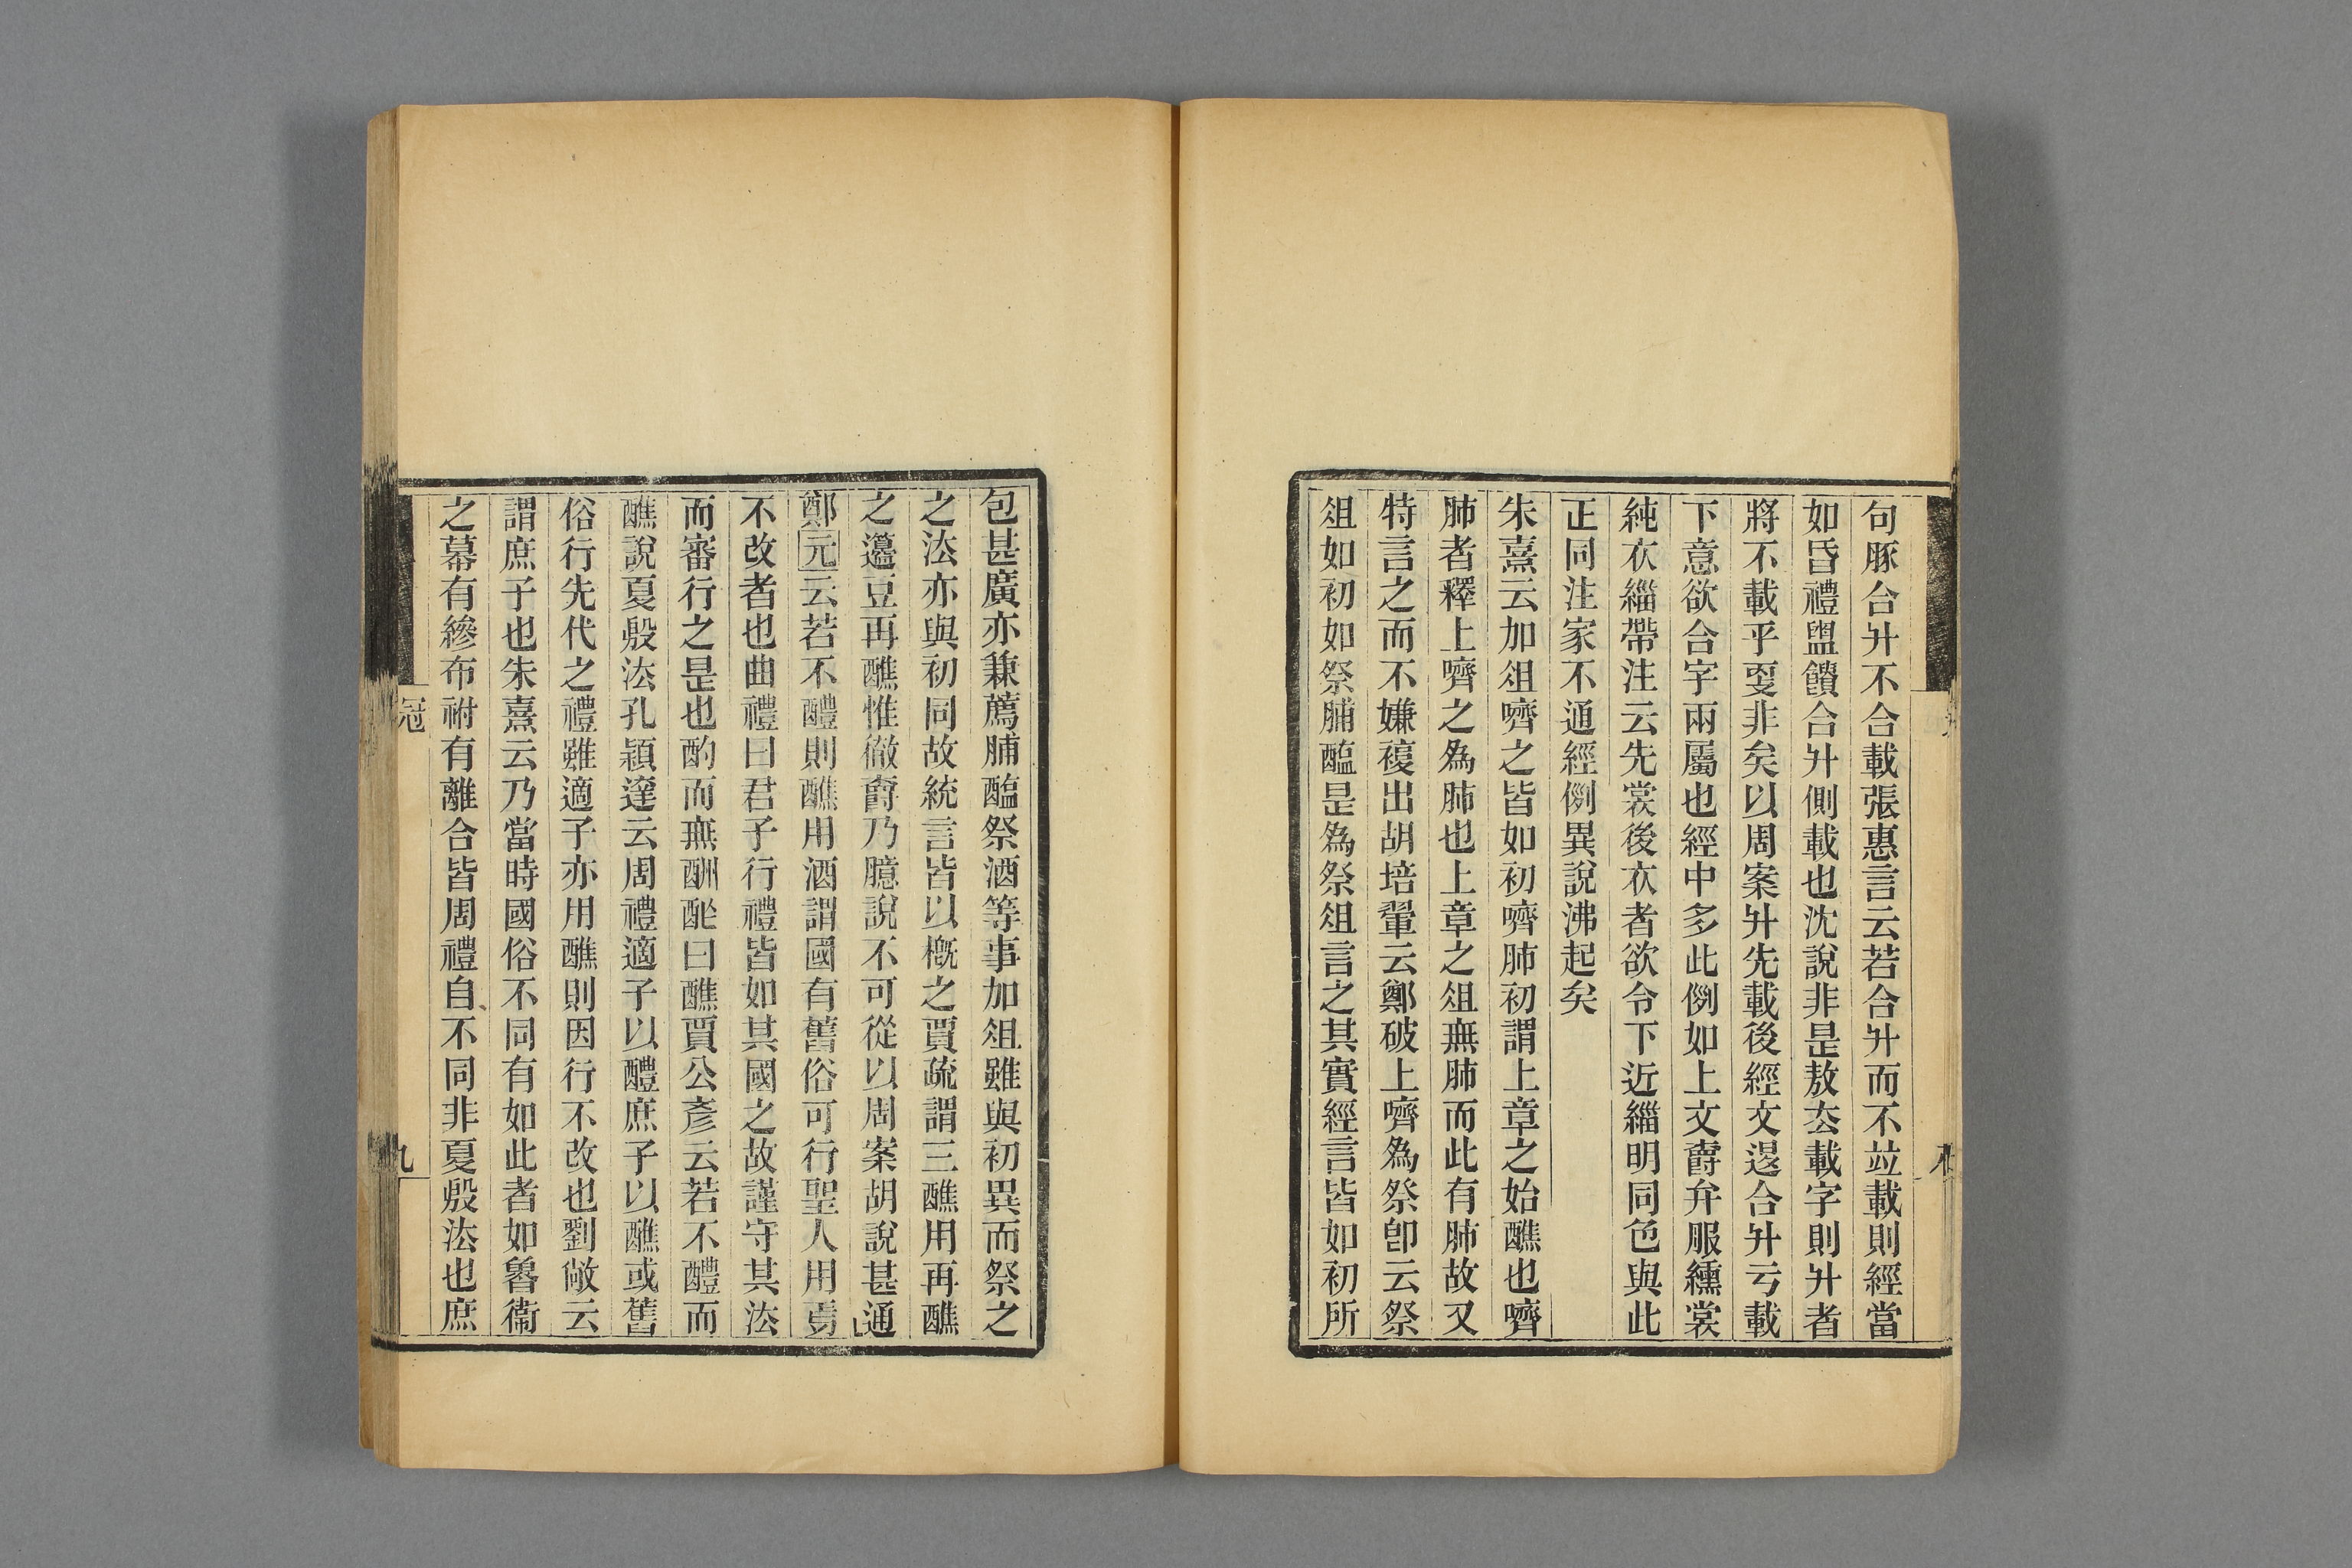 句豚合升不合載張惠言云若合升而不竝載則經當
如昏禮盥饋合升側載也沈說非是敖厺載字則升者
將不載乎叓非矣以周案升先載後經文遝合升亏載
下意欲合字兩屬也經中多此例如上文爵弁服纁裳
純衣緇帶注云先裳後衣者欲令下近緇明同色與此
正同注家不通經例異說沸起矣
朱熹云加俎嚌之皆如初嚌肺初謂上章之始醮也嚌
肺者釋上嚌之爲肺也上章之俎無肺而此有肺故又
特言之而不嫌複出胡培翬云鄭破上嚌爲祭卽云祭
俎如初如祭脯醢是爲祭俎言之其實經言皆如初所
包甚廣亦兼薦脯醢祭酒等事加俎雖與初異而祭之
之法亦與初同故統言皆以槪之賈疏謂三醮用再醮
之籩豆再醮惟徹爵乃臆說不可從以周案胡說甚通
鄭元云若不醴則醮用酒謂國有舊俗可行聖人用焉
不改者也曲禮曰君子行禮皆如其國之故謹守其法
而審行之是也酌而無酬酢曰醮賈公彥云若不醴而
醮說夏殷法孔穎達云周禮適子以醴庶子以醮或舊
俗行先代之禮雖適子亦用醮則因行不改也劉敞云
謂庶子也朱熹云乃當時國俗不同有如此者如魯衞
之幕有縿布祔有離合皆周禮自不同非夏殷法也庶
冠
九